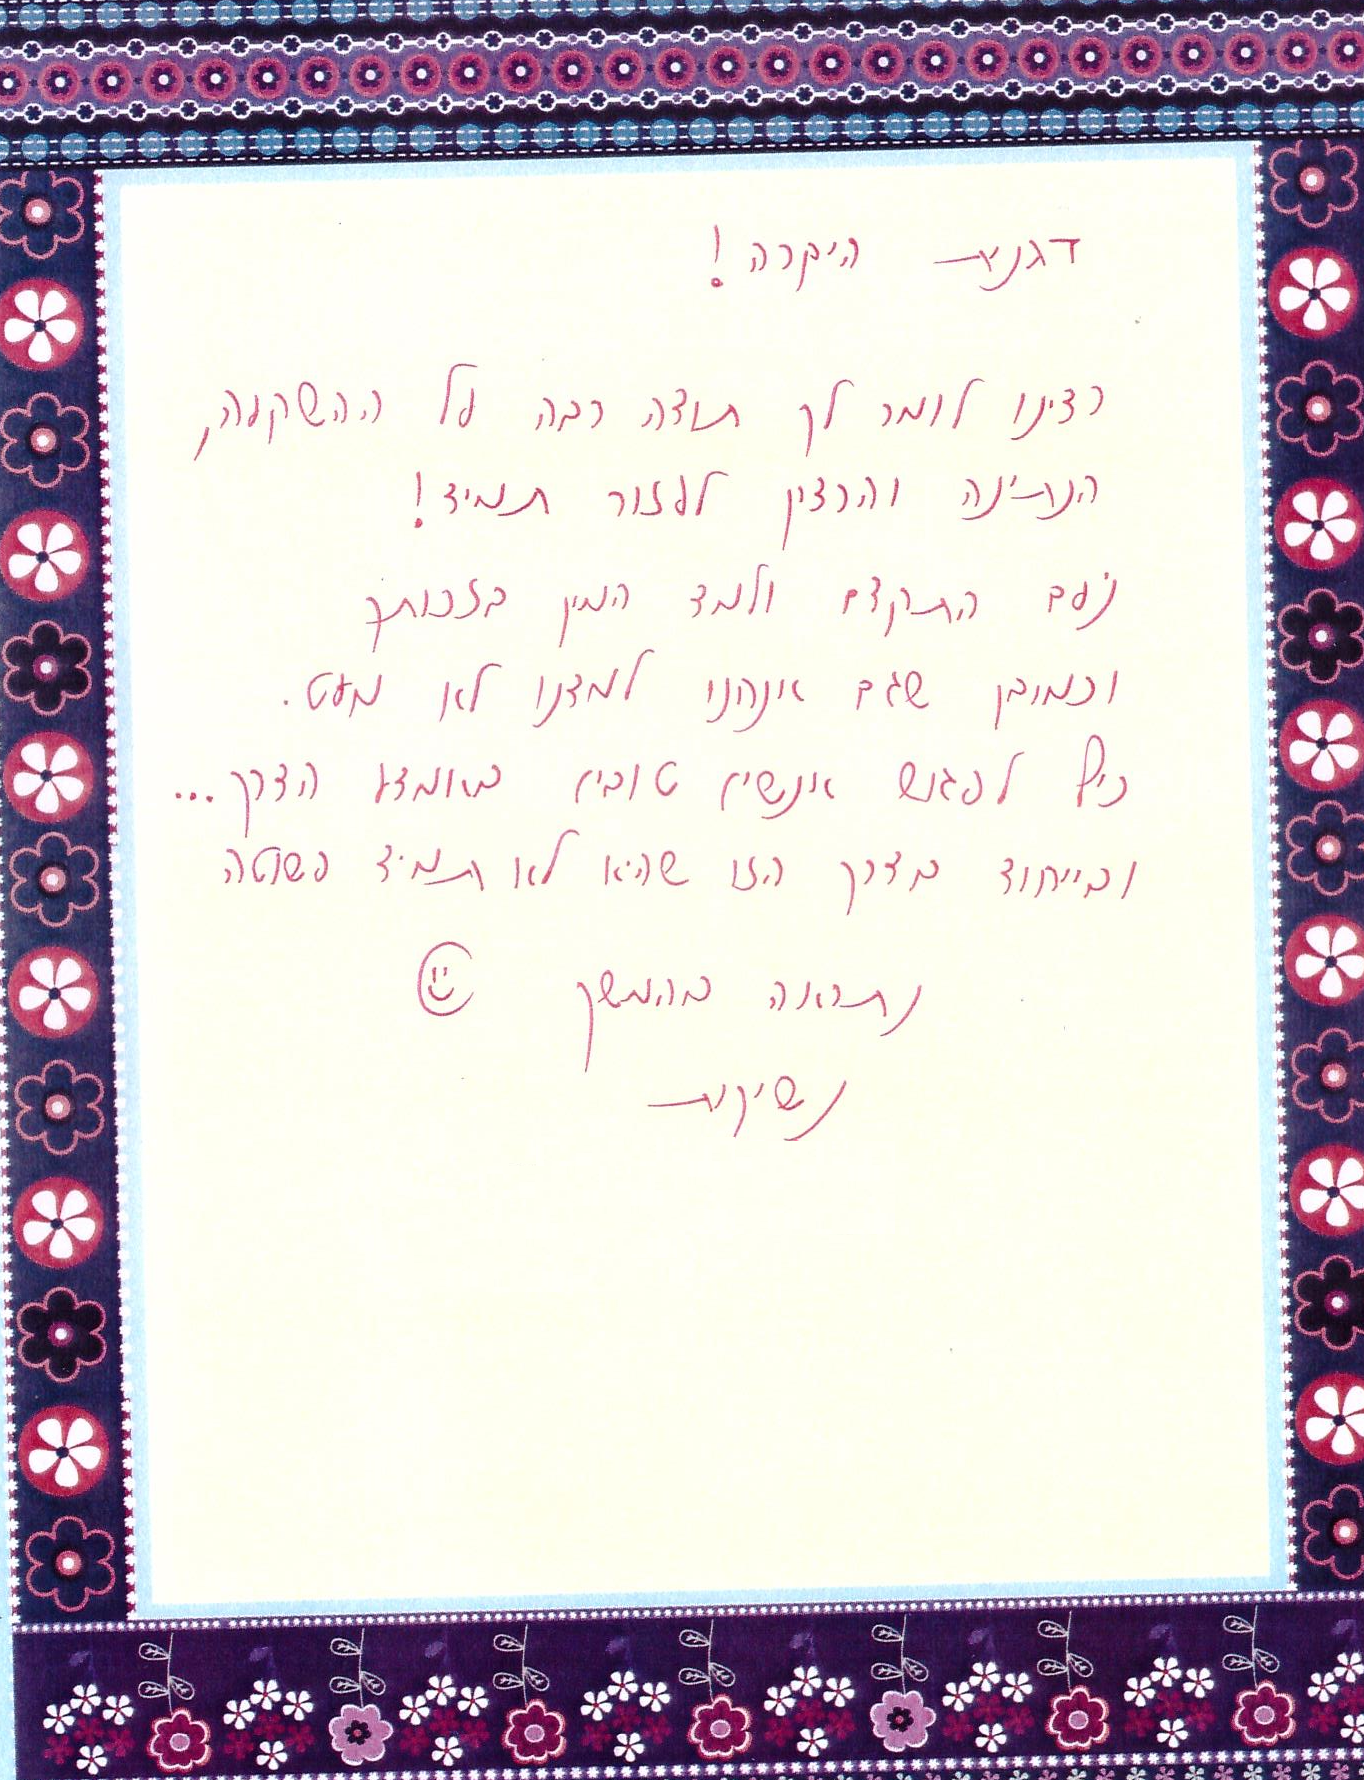 דגנית היקרה!
רצינו לומר לך תודה רבה על ההשקעה,
הנתינה והרצון לעזור תמיד!
נועם התקדם ולמד המון בזכותך
וכמובן שגם אנחנו למדנו לא מעט.
כיף לפגוש אנשים טובים באמצע הדרך...
ובייחוד בדרך הזו שהיא לא תמיד פשוטה
נתראה בהמשך
נשיקות